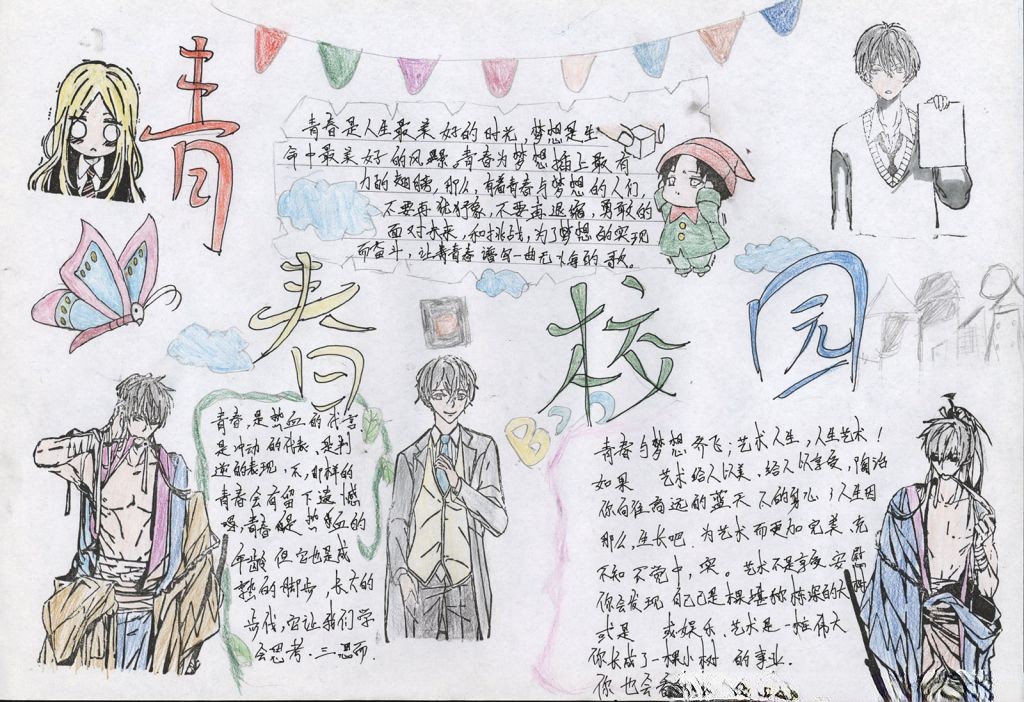 青春校园
青春是人生最美好的时光,梦想是生
命中最美好的风景。青春为梦想插上最有
力的翅膀,那么,有着青春与梦想的人们,
不要再犹豫,不要再退缩,勇敢的
面对未来,和挑战,为了梦想的实现
而奋斗,让青春谱写一曲无悔的歌。
青春,是热血的代言
是冲动的代表,是叛
逆的表现,不,那样的
青春会荷留下遗憾
嘿,青春是热血的
年龄但它也是成
熟的脚步,长大的
步伐,它让我们学
会思考.三思而.
青春与梦想齐飞;艺术人生,人生艺术!
如果 艺术给人以美,给人以享受,陶冶
你向往高远的蓝天 人的身心;人生因
那么,生长吧 为艺术而更加完美,充
不知不觉中, 实。艺术不是享受,安慰
你会发现 自己已是棵堪称栋梁的大树
或是 或娱乐.艺术是一桩伟大
你长成了一棵小树 的事业.
你也会看